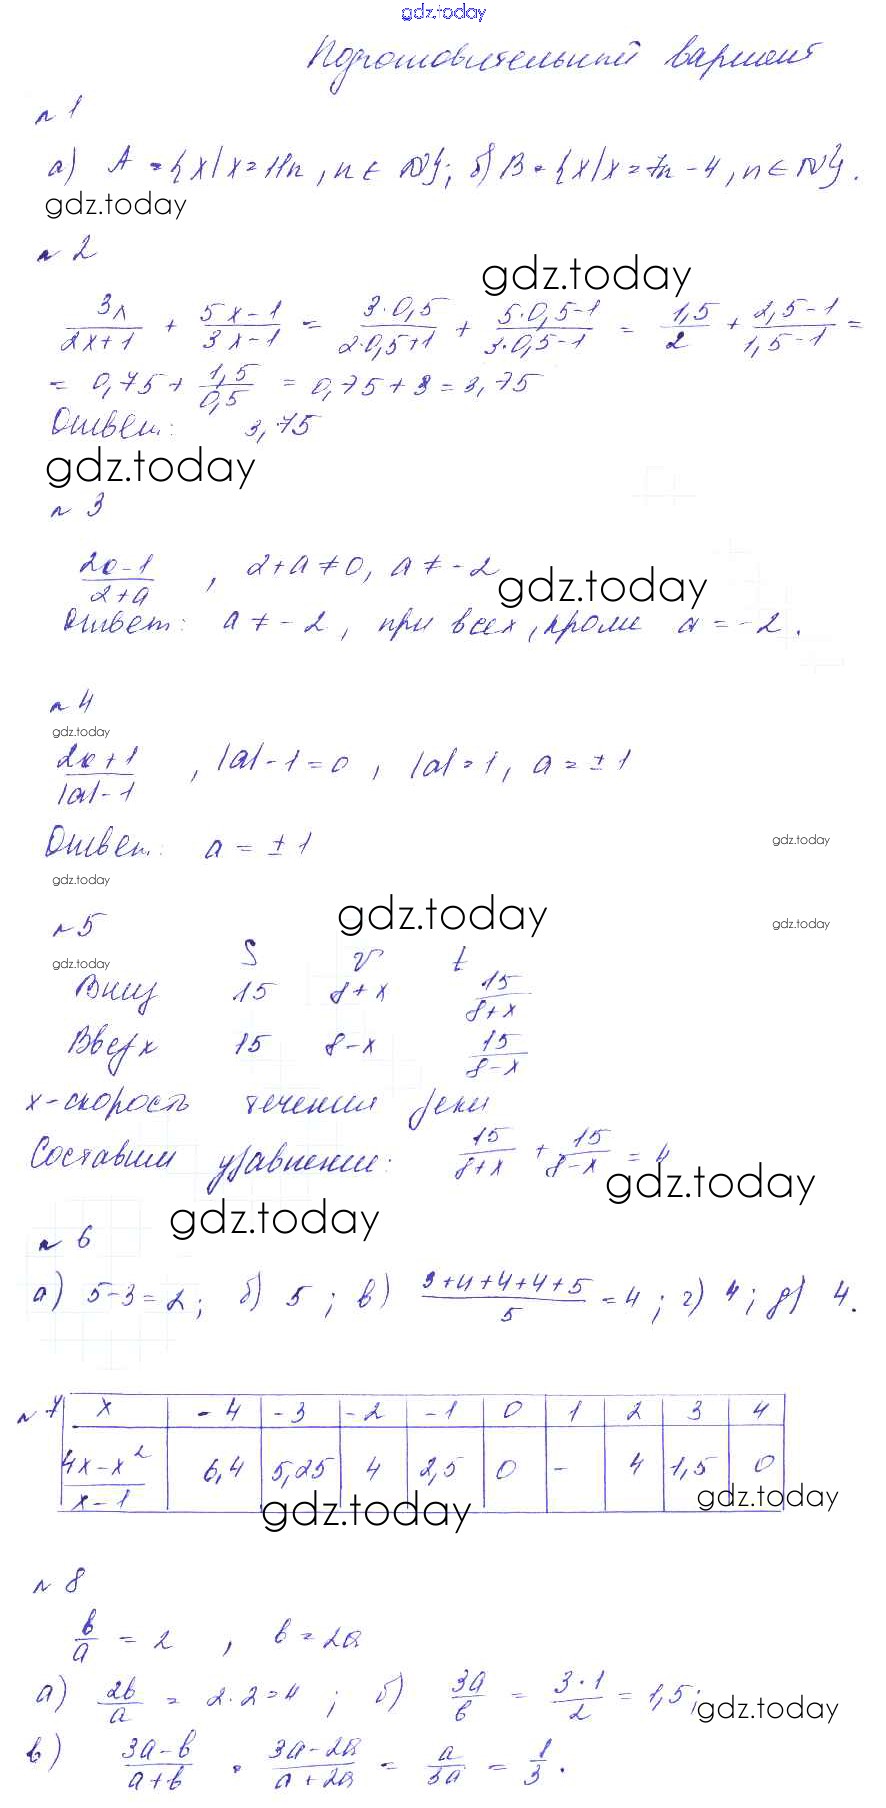 gdz.today
Подготовительный вариант
№ 1
а) A = {x | x = 11n, n ∈ N}; б) B = {x | x = 7n - 4, n ∈ N}.
gdz.today
№ 2
gdz.today
3x/(2x+1) + (5x-1)/(3x-1) = 3·0,5/(2·0,5+1) + (5·0,5-1)/(3·0,5-1) = 1,5/2 + (2,5-1)/(1,5-1) =
= 0,75 + 1,5/0,5 = 0,75 + 3 = 3,75
Ответ: 3,75
gdz.today
№ 3
(2a-1)/(2+a), 2+a ≠ 0, a ≠ -2
gdz.today
Ответ: a ≠ -2, при всех, кроме a = -2.
№ 4
gdz.today
(2a+1)/(|a|-1), |a|-1=0, |a|=1, a = ±1
Ответ: a = ±1
gdz.today
gdz.today
№ 5
gdz.today
gdz.today
gdz.today
S v t
Вниз 15 8+x 15/(8+x)
Вверх 15 8-x 15/(8-x)
x - скорость течения реки
Составим уравнение: 15/(8+x) + 15/(8-x) = 4
gdz.today
gdz.today
№ 6
а) 5-3=2; б) 5; в) (3+4+4+4+5)/5 = 4; г) 4; д) 4.
№ 7 x -4 -3 -2 -1 0 1 2 3 4
(4x-x²)/(x-1) 6,4 5,25 4 2,5 0 - 4 1,5 0
gdz.today
gdz.today
№ 8
b/a = 2, b = 2a
а) 2b/a = 2·2=4; б) 3a/b = 3·1/2 = 1,5;
gdz.today
в) (3a-b)/(a+b) = (3a-2a)/(a+2a) = a/3a = 1/3.